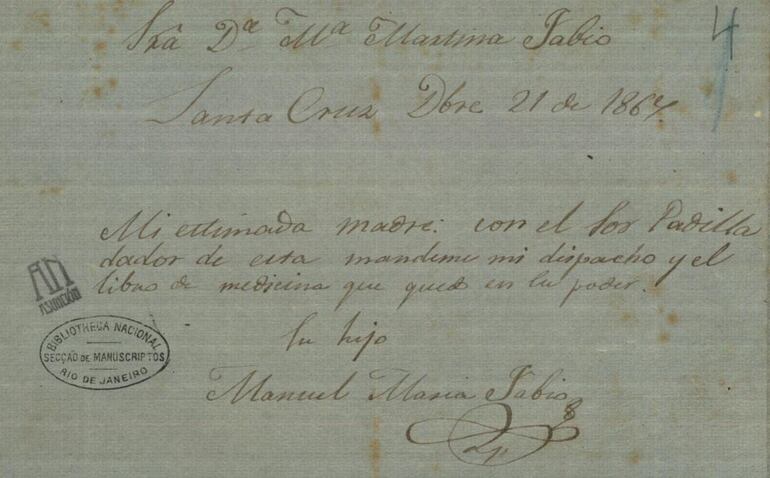 Sra Da Ma Martina Fabio
4
Santa Cruz Dbre 21 de 1867.
Mi estimada madre: con el Sor Padilla
dador de esta mandeme mi dispacho y el
libro de medicina que quedó en su poder.
Su hijo
Manuel Maria Fabio
AN
ASUNCIÓN
BIBLIOTHECA NACIONAL
SECÇÃO DE MANUSCRIPTOS
RIO DE JANEIRO